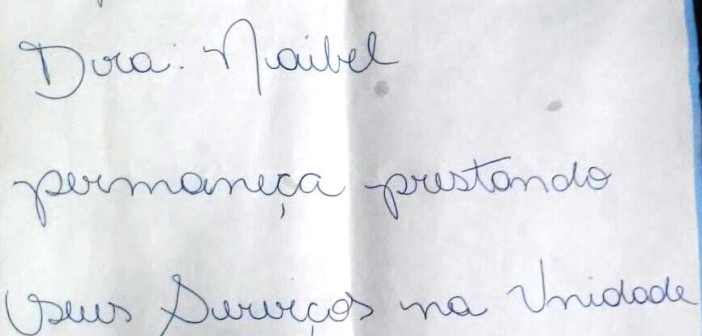 Dra: Maibel
permaneça prestando
seus Serviços na Unidade